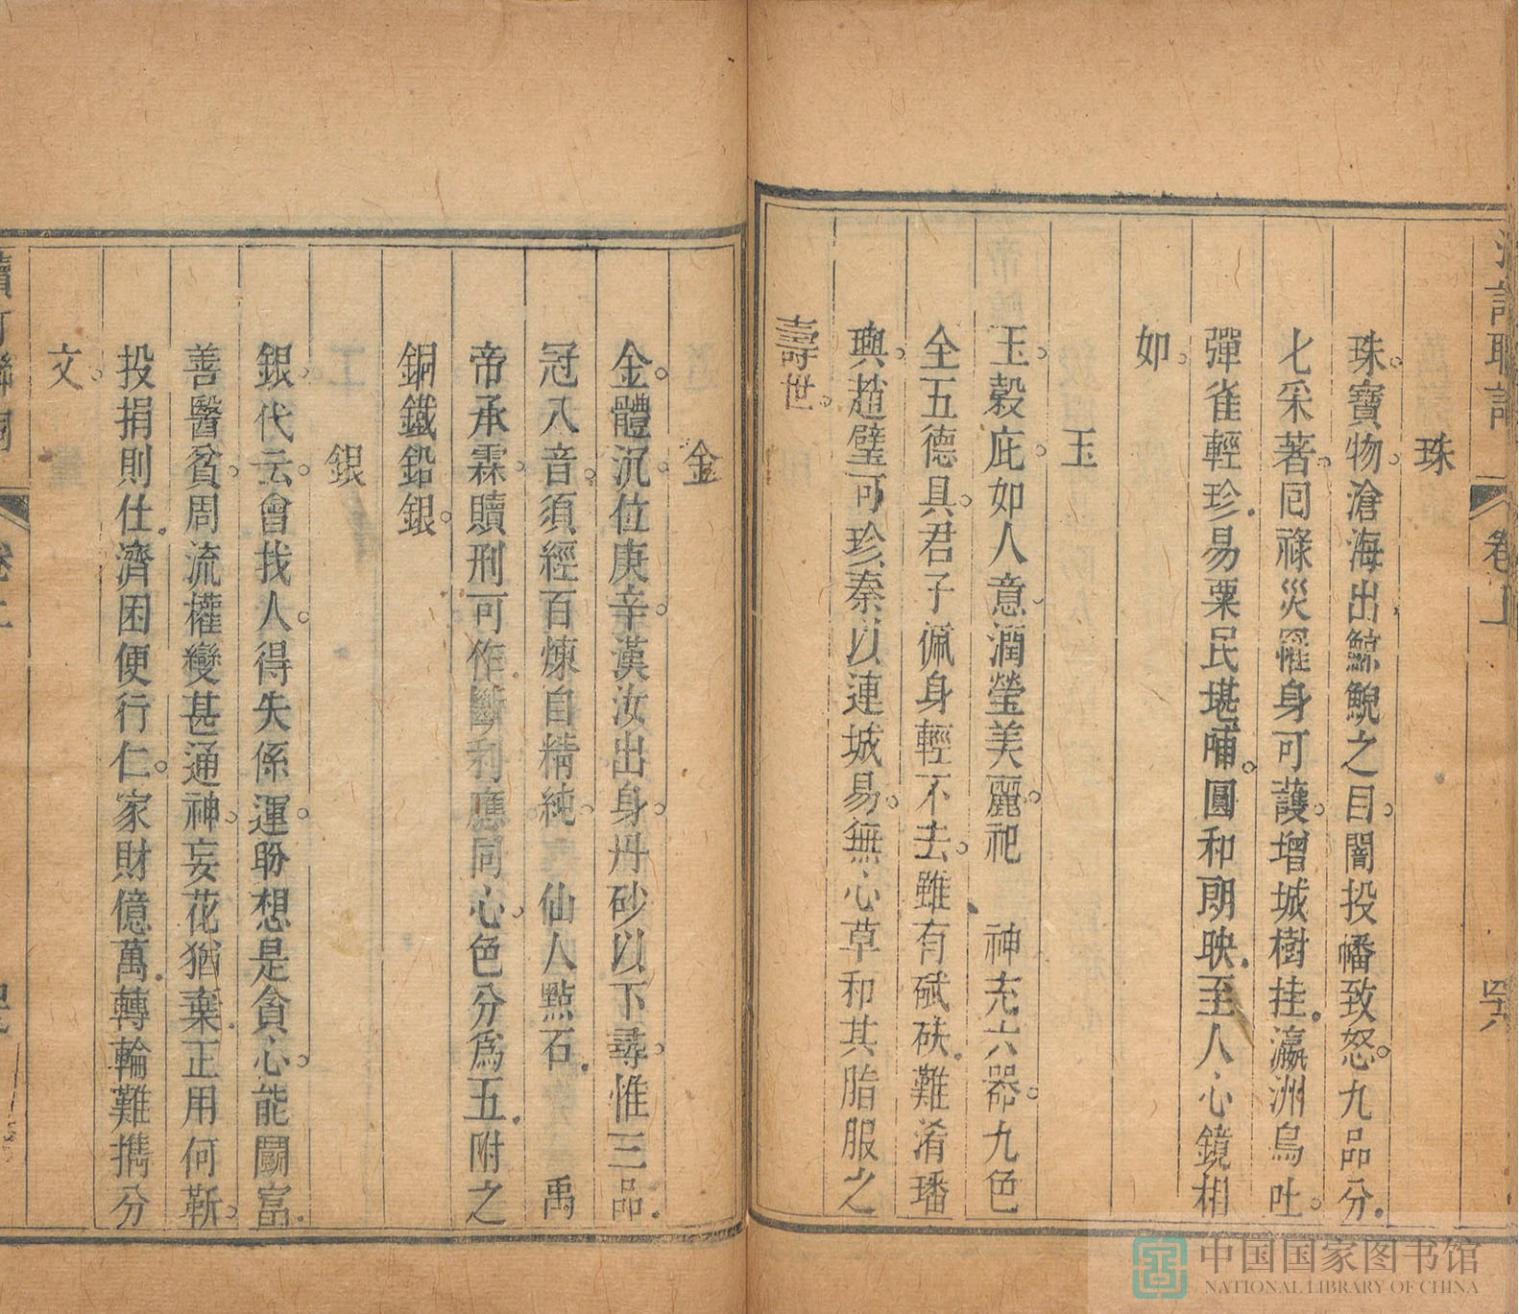 珠
珠寶物滄海出鯨鯢之目闇投幡致怒九品分
七采著囘祿災罹身可護增城樹挂瀛洲鳥吐
彈雀輕珍易粟民堪哺圓和朗映至人心鏡相
如
玉
玉穀庇如人意潤瑩美麗祀 神充六器九色
全五德具君子佩身輕不去雖有碔砆難淆璠
璵趙璧可珍秦以連城易無心草和其脂服之
壽世
卷上
金
金體沉位庚辛漢汝出身丹砂以下尋惟三品
冠八音須經百煉自精純 仙人點石 禹
帝承霖贖刑可作斷利應同心色分爲五附之
銅鐵鉛銀
銀
銀代云會找人得失係運盼想是貪心能鬭富
善醫貧周流權變甚通神妄花猶棄正用何靳
投捐則仕濟困便行仁家財億萬轉輪難攜分
文
中国国家图书馆
NATIONAL LIBRARY OF CHINA